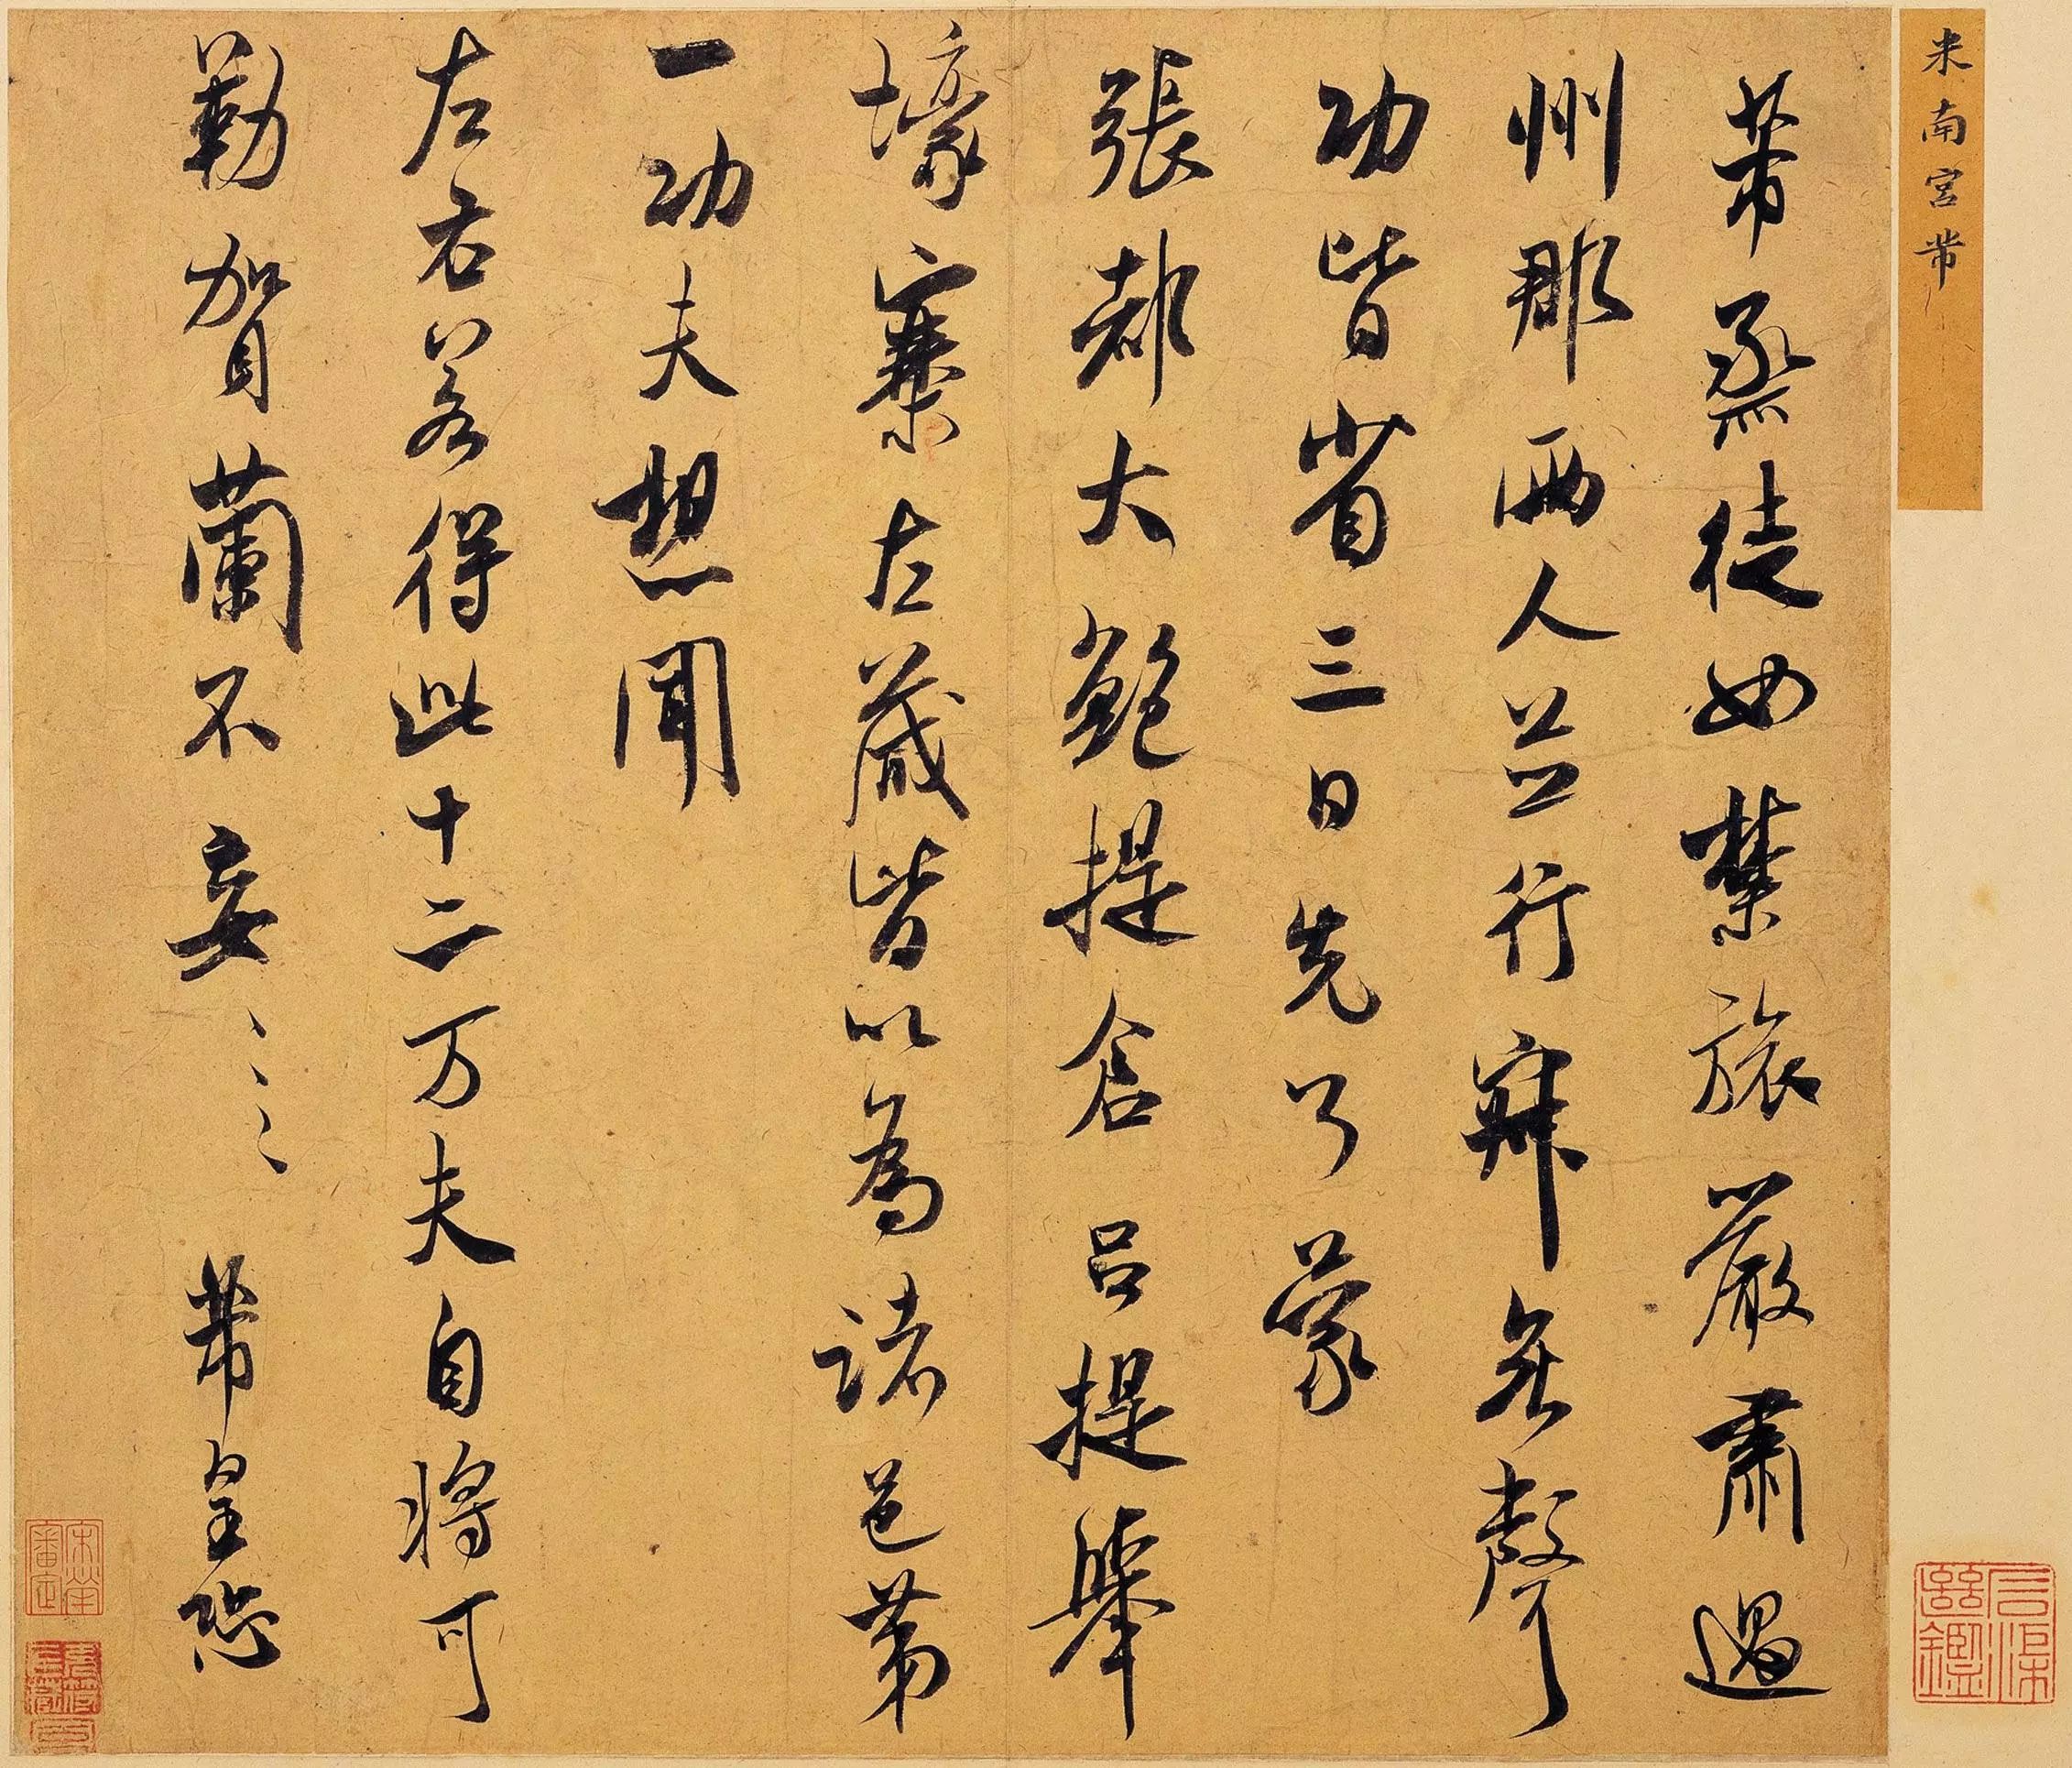 米南宮芾
芾烝徒如禁旅嚴肅過
州郡兩人並行寂無聲
功皆省三日先了蒙
張都大鮑提倉呂提舉
壕寨左藏皆以為諸邑第
一功夫想聞
左右若得此十二万夫自將可
勒賀蘭不妄〻〻〻芾皇恐